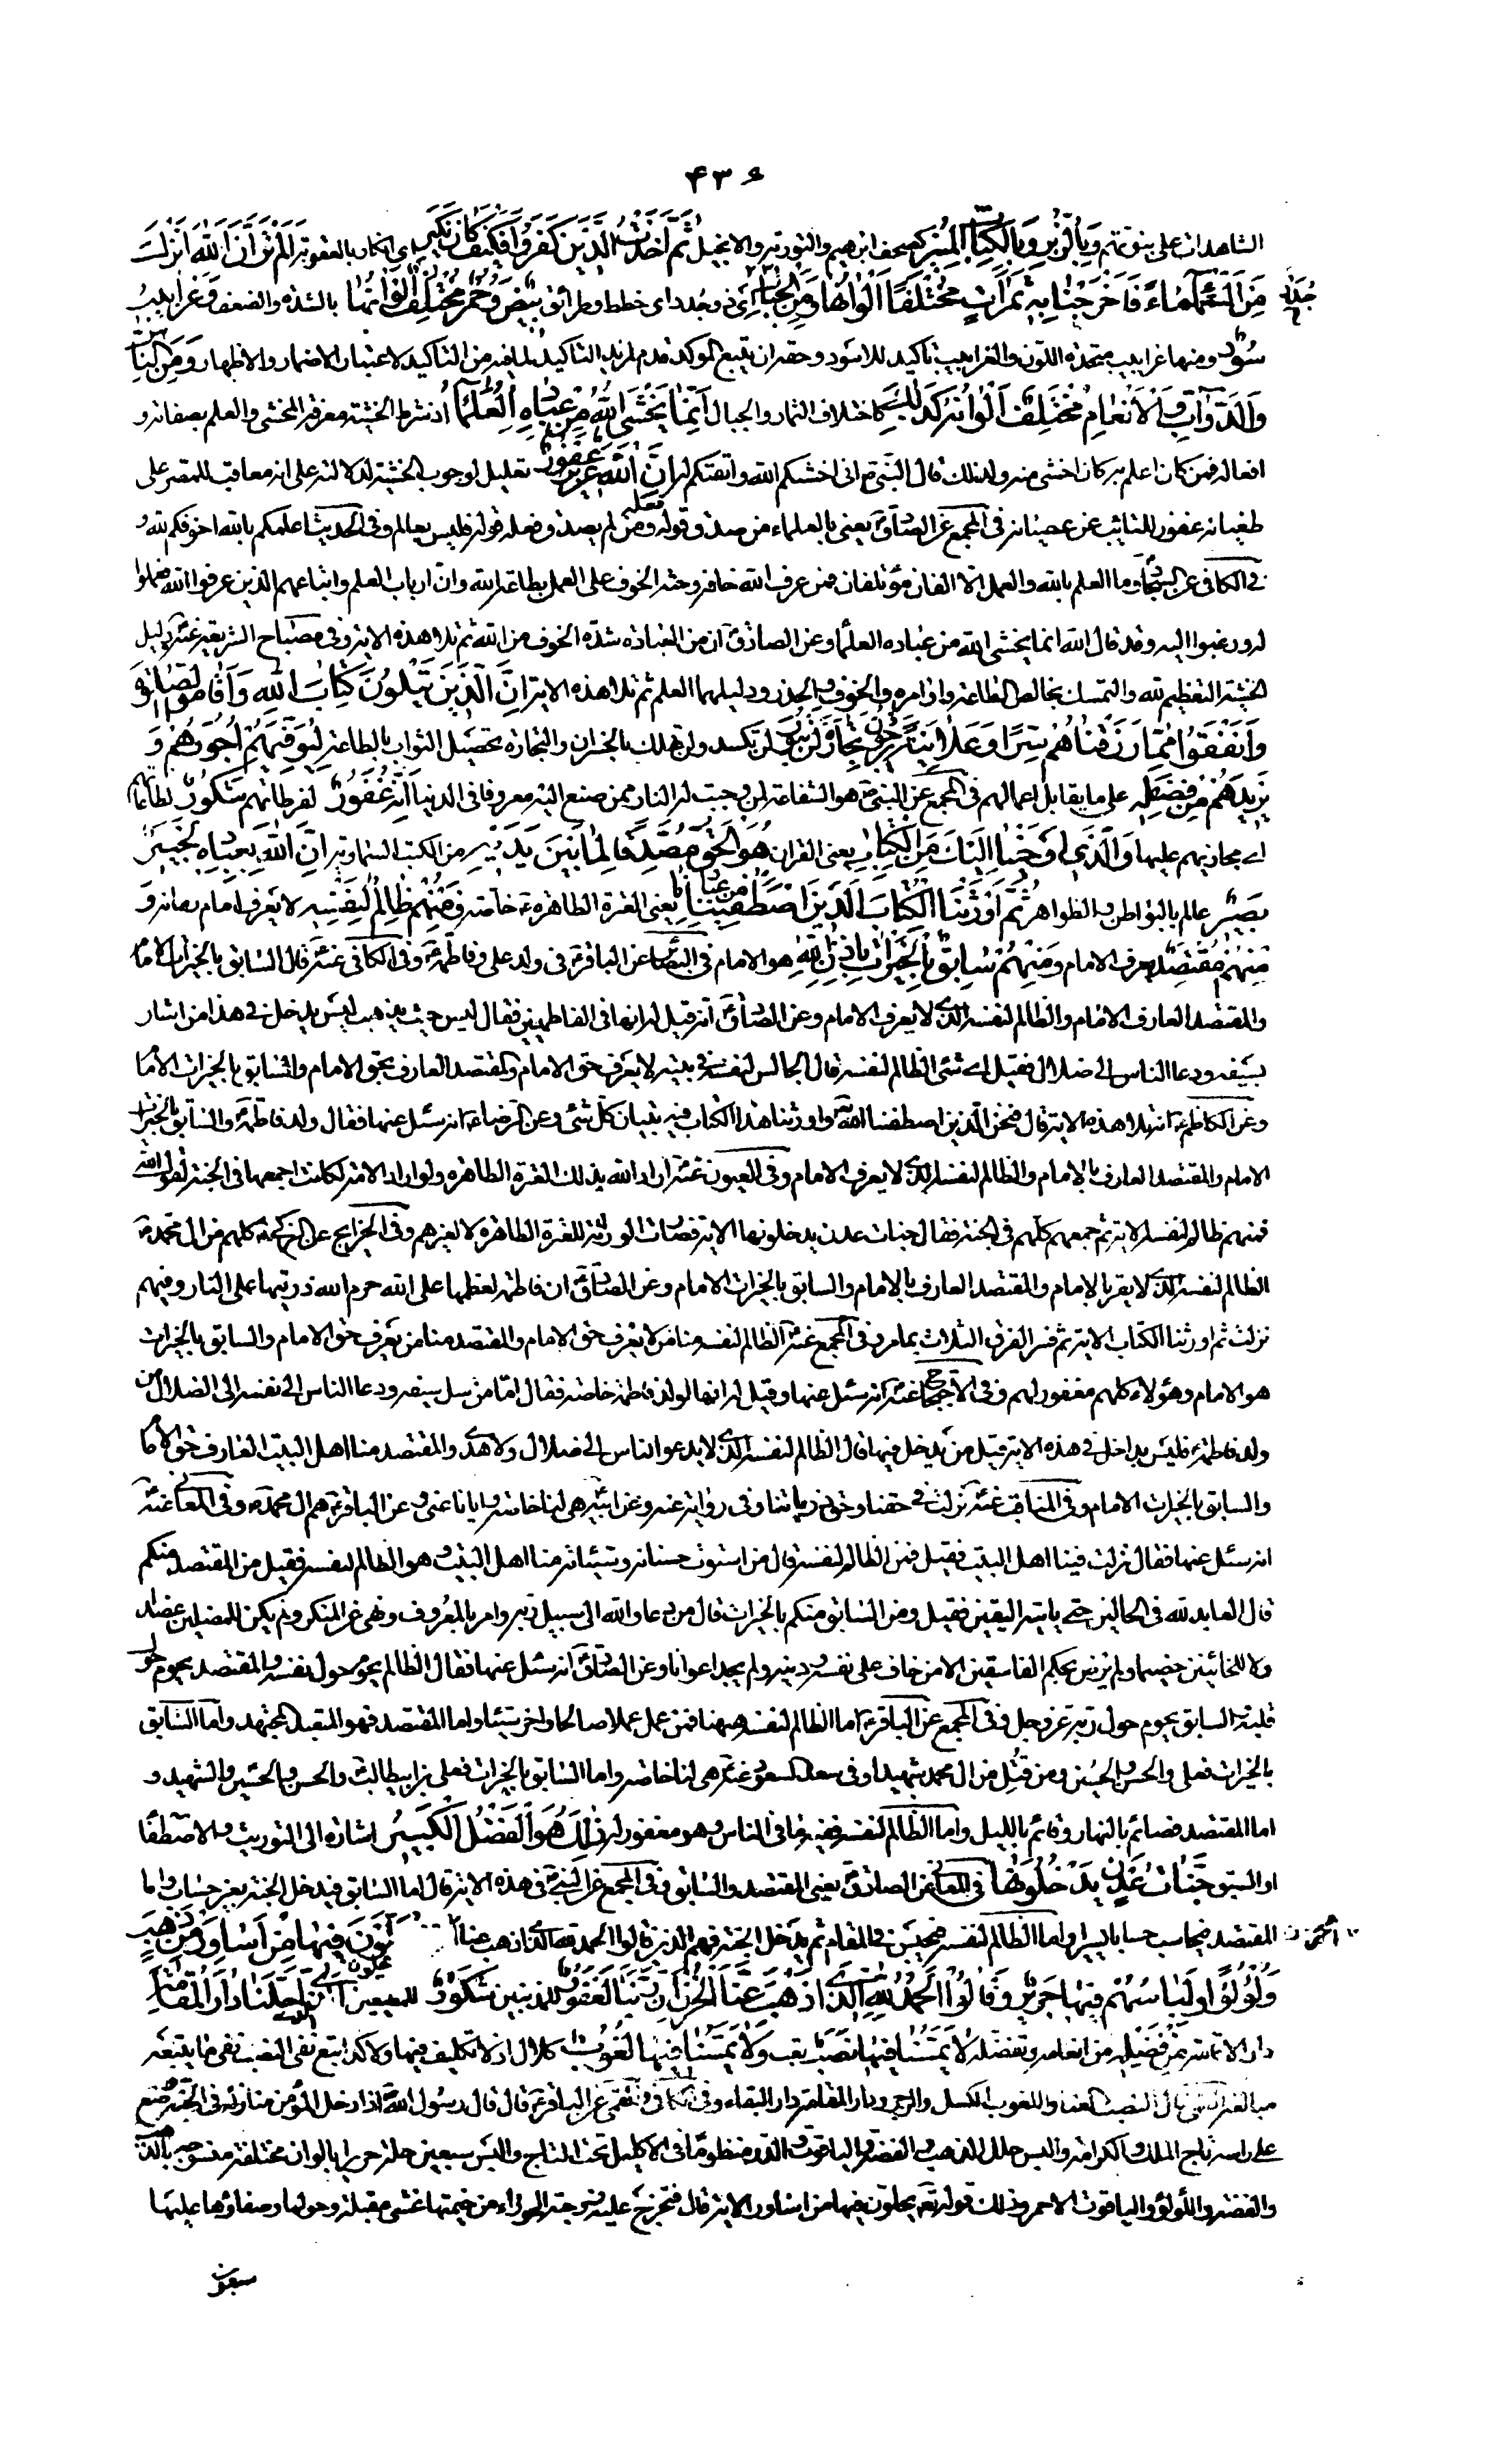 ۴۳۶
الشاهدات على نبوتهم وَبِالزُّبُرِ وَبِالْكِتابِ الْمُنِيرِ كصحف ابرهيم والتورية والانجيل ثُمَّ أَخَذْتُ الَّذِينَ كَفَرُوا فَكَيْفَ كانَ نَكِيرِ اى انكارى بالعقوبة أَلَمْ تَرَ أَنَّ اللَّهَ أَنْزَلَ
مِنَ السَّماءِ ماءً فَأَخْرَجْنا بِهِ ثَمَراتٍ مُخْتَلِفاً أَلْوانُها وَمِنَ الْجِبالِ جُدَدٌ اى ذو جدد اى خطط وطرائق بِيضٌ وَحُمْرٌ مُخْتَلِفٌ أَلْوانُها بالشدة والضعف وَغَرابِيبُ
سُودٌ ومنها غرابيب متحدة اللون والغرابيب تاكيد للاسود وحقه ان يتبع الموكد قدم لمزيد التاكيد لما فيه من التاكيد لاعتبار الاضمار والاظهار وَمِنَ النَّاسِ
وَالدَّوَابِّ وَالْأَنْعامِ مُخْتَلِفٌ أَلْوانُهُ كَذلِكَ كاختلاف الثمار والجبال إِنَّما يَخْشَى اللَّهَ مِنْ عِبادِهِ الْعُلَماءُ اذ شرط الخشية معرفة المخشى والعلم بصفاته و
افعاله فمن كان اعلم به كان اخشى منه ولذلك قال النبى ص انى اخشيكم الله واتقيكم له إِنَّ اللَّهَ عَزِيزٌ غَفُورٌ تعليل لوجوب الخشية لدلالته على انه معاقب للمصر على
طغيانه غفور للتائب عن عصيانه فى المجمع عن الصادق يعنى بالعلماء من صدق قوله فعله ومن لم يصدق فعله قوله فليس بعالم وفى الحديث اعلمكم بالله اخوفكم لله و
فى الكافى عن السجاد وما العلم بالله والعمل الا الفان مؤتلفان فمن عرف الله خافه وحثه الخوف على العمل بطاعة الله وان ارباب العلم واتباعهم الذين عرفوا الله فعملوا
له ورغبوا اليه وقد قال الله انما يخشى الله من عباده العلما وعن الصادق ان من العبادة شدة الخوف من الله ثم تلا هذه الاية وفى مصباح الشريعة عنه دليل
الخشية التعظيم لله والتمسك بخالص الطاعة واوامره والخوف والحذر ودليلهما العلم ثم تلا هذه الاية إِنَّ الَّذِينَ يَتْلُونَ كِتابَ اللَّهِ وَأَقامُوا الصَّلاةَ
وَأَنْفَقُوا مِمَّا رَزَقْناهُمْ سِرًّا وَعَلانِيَةً يَرْجُونَ تِجارَةً لَنْ تَبُورَ لن تكسد ولن تهلك بالخسران والتجارة تحصيل الثواب بالطاعة لِيُوَفِّيَهُمْ أُجُورَهُمْ وَ
يَزِيدَهُمْ مِنْ فَضْلِهِ على ما يقابل اعمالهم فى المجمع عن النبى ص هو الشفاعة لمن وجبت له النار ممن صنع اليه معروفا فى الدنيا إِنَّهُ غَفُورٌ لفرطاتهم شَكُورٌ لطاعاتهم
اى مجازيهم عليها وَالَّذِي أَوْحَيْنا إِلَيْكَ مِنَ الْكِتابِ يعنى القران هُوَ الْحَقُّ مُصَدِّقاً لِما بَيْنَ يَدَيْهِ من الكتب السماوية إِنَّ اللَّهَ بِعِبادِهِ لَخَبِيرٌ
بَصِيرٌ عالم بالبواطن والظواهر ثُمَّ أَوْرَثْنَا الْكِتابَ الَّذِينَ اصْطَفَيْنا مِنْ عِبادِنا يعنى العترة الطاهرة خاصة فَمِنْهُمْ ظالِمٌ لِنَفْسِهِ لا يعرف امام زمانه وَ
مِنْهُمْ مُقْتَصِدٌ يعرف الامام وَمِنْهُمْ سابِقٌ بِالْخَيْراتِ بِإِذْنِ اللَّهِ هو الامام فى البصائر عن الباقر هى فى ولد على وفاطمة وفى الكافى عنه قال السابق بالخيرات الامام
والمقتصد العارف الامام والظالم لنفسه الذى لا يعرف الامام وعن الصادق انه قيل له انها فى الفاطميين فقال ليس حيث يذهب ليس يدخل فى هذا من اشار
بسيفه ودعا الناس الى ضلال فقيل اى شئ الظالم لنفسه قال الجالس لنفسه فى بيته لا يعرف حق الامام والمقتصد العارف بحق الامام والسابق بالخيرات الامام
وعن الكاظم انه تلا هذه الاية قال فنحن الذين اصطفينا الله واورثنا هذا الكتاب فيه تبيان كل شئ وعن الرضا انه سئل عنها فقال ولد فاطمة والسابق بالخيرات
الامام والمقتصد العارف بالامام والظالم لنفسه الذى لا يعرف الامام وفى العيون عنه اراد الله بذلك العترة الطاهرة ولو اراد الامة لكانت اجمعها فى الجنة لقول الله
فمنهم ظالم لنفسه الاية ثم جمعهم كلهم فى الجنة فقال جنات عدن يدخلونها الاية فصارت الوراثة للعترة الطاهرة لا لغيرهم وفى الخرايج عن الزكى كلهم من ال محمد
الظالم لنفسه الذى لا يقر بالامام والمقتصد العارف بالامام والسابق بالخيرات الامام وعن الصادق ان فاطمة لعظمها على الله حرم الله ذريتها على النار وفيهم
نزلت ثم اورثنا الكتاب الاية ثم فسر الفرق الثلاث بما مر وفى المجمع عنه الظالم لنفسه منا من لا يعرف حق الامام والمقتصد منا من يعرف حق الامام والسابق بالخيرات
هو الامام وهؤلاء كلهم مغفور لهم وفى الاحتجاج عنه انه سئل عنها وقيل له انها لولد فاطمة خاصة فقال اما من سل سيفه ودعا الناس الى نفسه الى الضلال من
ولد فاطمة فليس بداخل فى هذه الاية قيل من يدخل فيها قال الظالم لنفسه الذى لا يدعو الناس الى ضلال ولا هدى والمقتصد منا اهل البيت العارف حق الامام
والسابق بالخيرات الامام وفى المناقب عنه نزلت فى حقنا وحق ذرياتنا وفى رواية عنه وعن ابيه هى لنا خاصة وايانا عنى وعن الباقر هم ال محمد وفى المعانى عنه
انه سئل عنها فقال نزلت فينا اهل البيت فقيل فمن الظالم لنفسه قال من استوت حسناته وسيئاته منا اهل البيت وهو الظالم لنفسه فقيل من المقتصد منكم
قال العابد لله فى الحالين حتى ياتيه اليقين فقيل ومن السابق منكم بالخيرات قال من دعا والله الى سبيل ربه وامر بالمعروف ونهى عن المنكر ولم يكن للمضلين عضدا
ولا للخائنين خصيما ولم يرض بحكم الفاسقين الا من خاف على نفسه ودينه ولم يجد اعوانا وعن الصادق انه سئل عنها فقال الظالم يحوم حول نفسه والمقتصد يحوم حول
قلبه والسابق يحوم حول ربه عز وجل وفى المجمع عن الباقر اما الظالم لنفسه فيهنا فمن عمل عملا صالحا واخر سيئا واما المقتصد فهو المتعبد المجتهد واما السابق
بالخيرات فعلى والحسن والحسين ومن قتل من ال محمد شهيدا وفى سعد السعود عنه هى لنا خاصة واما السابق بالخيرات فعلى بن ابيطالب والحسن والحسين والشهيد و
اما المقتصد فصائم بالنهار وقائم بالليل واما الظالم لنفسه ففيه ما فى الناس وهو مغفور له ذلِكَ هُوَ الْفَضْلُ الْكَبِيرُ اشارة الى التوريث والاصطفا
او السبق جَنَّاتُ عَدْنٍ يَدْخُلُونَها فى المعانى عن الصادق يعنى المقتصد والسابق وفى المجمع عن النبى فى هذه الاية قال اما السابق فيدخل الجنة بغير حساب واما
المقتصد فيحاسب حسابا يسيرا واما الظالم لنفسه فيحبس فى المقام ثم يدخل الجنة فهم الذين قالوا الحمد لله الذى اذهب عنا الحزن يُحَلَّوْنَ فِيها مِنْ أَساوِرَ مِنْ ذَهَبٍ
وَلُؤْلُؤاً وَلِباسُهُمْ فِيها حَرِيرٌ وَقالُوا الْحَمْدُ لِلَّهِ الَّذِي أَذْهَبَ عَنَّا الْحَزَنَ إِنَّ رَبَّنا لَغَفُورٌ للمذنبين شَكُورٌ للمطيعين الَّذِي أَحَلَّنا دارَ الْمُقامَةِ
دار الاقامة مِنْ فَضْلِهِ من انعامه وتفضله لا يَمَسُّنا فِيها نَصَبٌ تعب وَلا يَمَسُّنا فِيها لُغُوبٌ كلال اذ لا تكليف فيها ولا كد اتبع نفى النصب نفى ما يتبعه
مبالغة القمى قال النصب العنا واللغوب الكسل والضجر ودار المقامة دار البقاء وفى الكافى والقمى عن الباقر قال قال رسول الله اذا دخل المؤمن منازله فى الجنة وضع
على راسه تاج الملك والكرامة والبس حلل الذهب والفضة والياقوت والدر منظوما فى الاكليل تحت التاج والبس سبعين حلة حريرا بالوان مختلفة منسوجة بالذهب
والفضة واللؤلؤ والياقوت الاحمر وذلك قوله تعه يحلون فيها من اساور الاية قال فتخرج عليه زوجته الحوراء من خيمتها تمشى مقبلة وحولها وصفاؤها عليها
سبعون